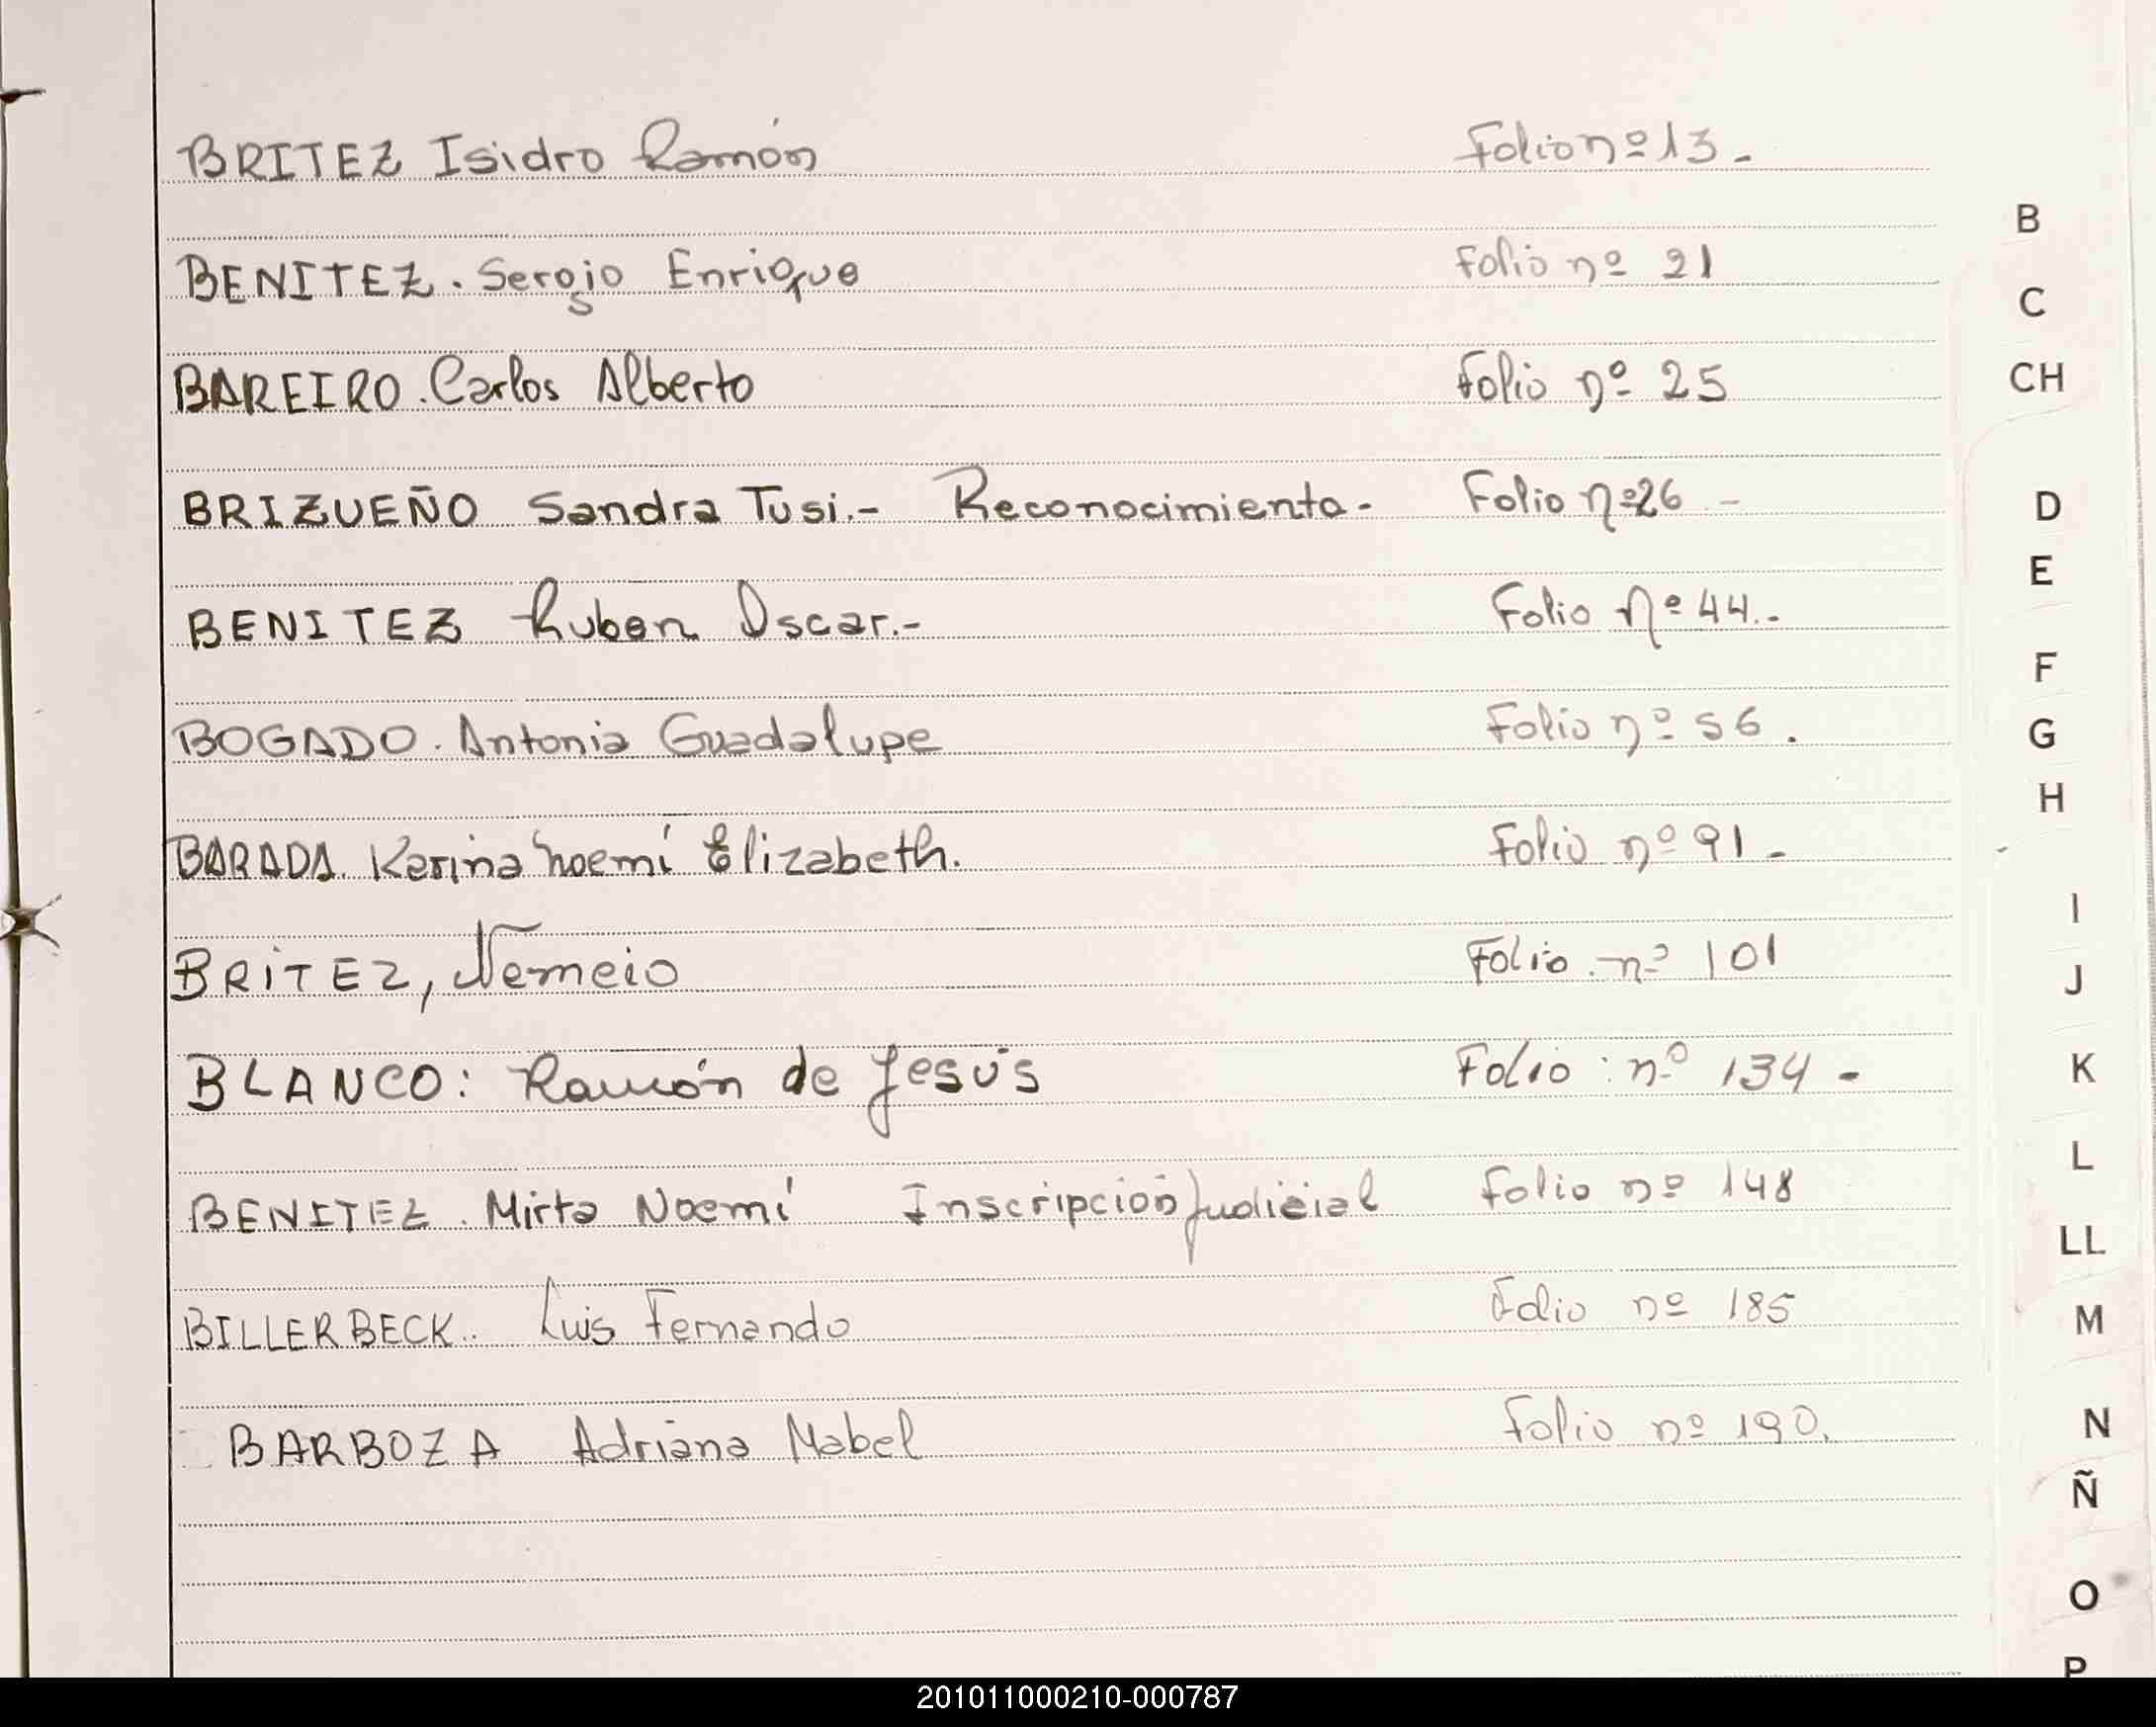 BRITEZ Isidro Ramón Folio nº 13.-
BENITEZ. Sergio Enrique Folio nº 21
BAREIRO. Carlos Alberto Folio nº 25
BRIZUEÑO Sandra Tusi.- Reconocimiento- Folio nº 26 -
BENITEZ Ruben Oscar.- Folio nº 44.-
BOGADO. Antonia Guadalupe Folio nº 56.
BARADA. Karina Noemí Elizabeth. Folio nº 91-
BRITEZ, Nemeio Folio. nº 101
BLANCO: Ramón de Jesús Folio: nº 134-
BENITEZ. Mirta Noemí Inscripción Judicial Folio nº 148
BILLERBECK.. Luis Fernando Folio nº 185
BARBOZA Adriana Mabel Folio nº 190.
B
C
CH
D
E
F
G
H
I
J
K
L
LL
M
N
Ñ
O
P
201011000210-000787